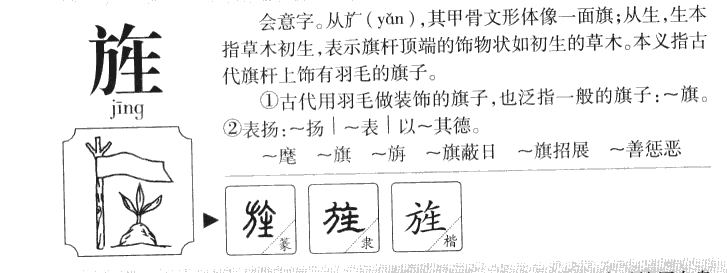 旌
jīng
会意字。从㫃(yǎn),其甲骨文形体像一面旗;从生,生本
指草木初生,表示旗杆顶端的饰物状如初生的草木。本义指古
代旗杆上饰有羽毛的旗子。
①古代用羽毛做装饰的旗子,也泛指一般的旗子:～旗。
②表扬:～扬｜～表｜以～其德。
～麾　～旗　～旃　～旗蔽日　～旗招展　～善惩恶
旌 篆 旌 隶 旌 楷